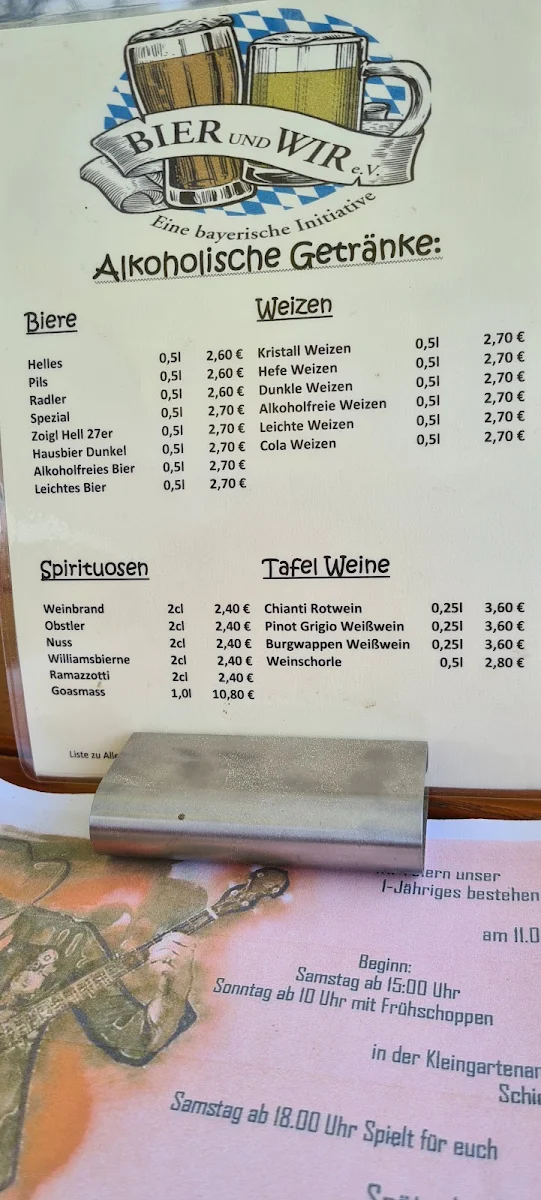 BIER UND WIR e.V.
Eine bayerische Initiative
Alkoholische Getränke:
Biere
Helles 0,5l 2,60 €
Pils 0,5l 2,60 €
Radler 0,5l 2,60 €
Spezial 0,5l 2,70 €
Zoigl Hell 27er 0,5l 2,70 €
Hausbier Dunkel 0,5l 2,70 €
Alkoholfreies Bier 0,5l 2,70 €
Leichtes Bier 0,5l 2,70 €
Weizen
Kristall Weizen 0,5l 2,70 €
Hefe Weizen 0,5l 2,70 €
Dunkle Weizen 0,5l 2,70 €
Alkoholfreie Weizen 0,5l 2,70 €
Leichte Weizen 0,5l 2,70 €
Cola Weizen 0,5l 2,70 €
Spirituosen
Weinbrand 2cl 2,40 €
Obstler 2cl 2,40 €
Nuss 2cl 2,40 €
Williamsbierne 2cl 2,40 €
Ramazzotti 2cl 2,40 €
Goasmass 1,0l 10,80 €
Tafel Weine
Chianti Rotwein 0,25l 3,60 €
Pinot Grigio Weißwein 0,25l 3,60 €
Burgwappen Weißwein 0,25l 3,60 €
Weinschorle 0,5l 2,80 €
Liste zu
unser
1-Jähriges bestehen
am 11.0
Beginn:
Samstag ab 15:00 Uhr
Sonntag ab 10 Uhr mit Frühschoppen
in der Kleingartenan
Schie
Samstag ab 18.00 Uhr Spielt für euch